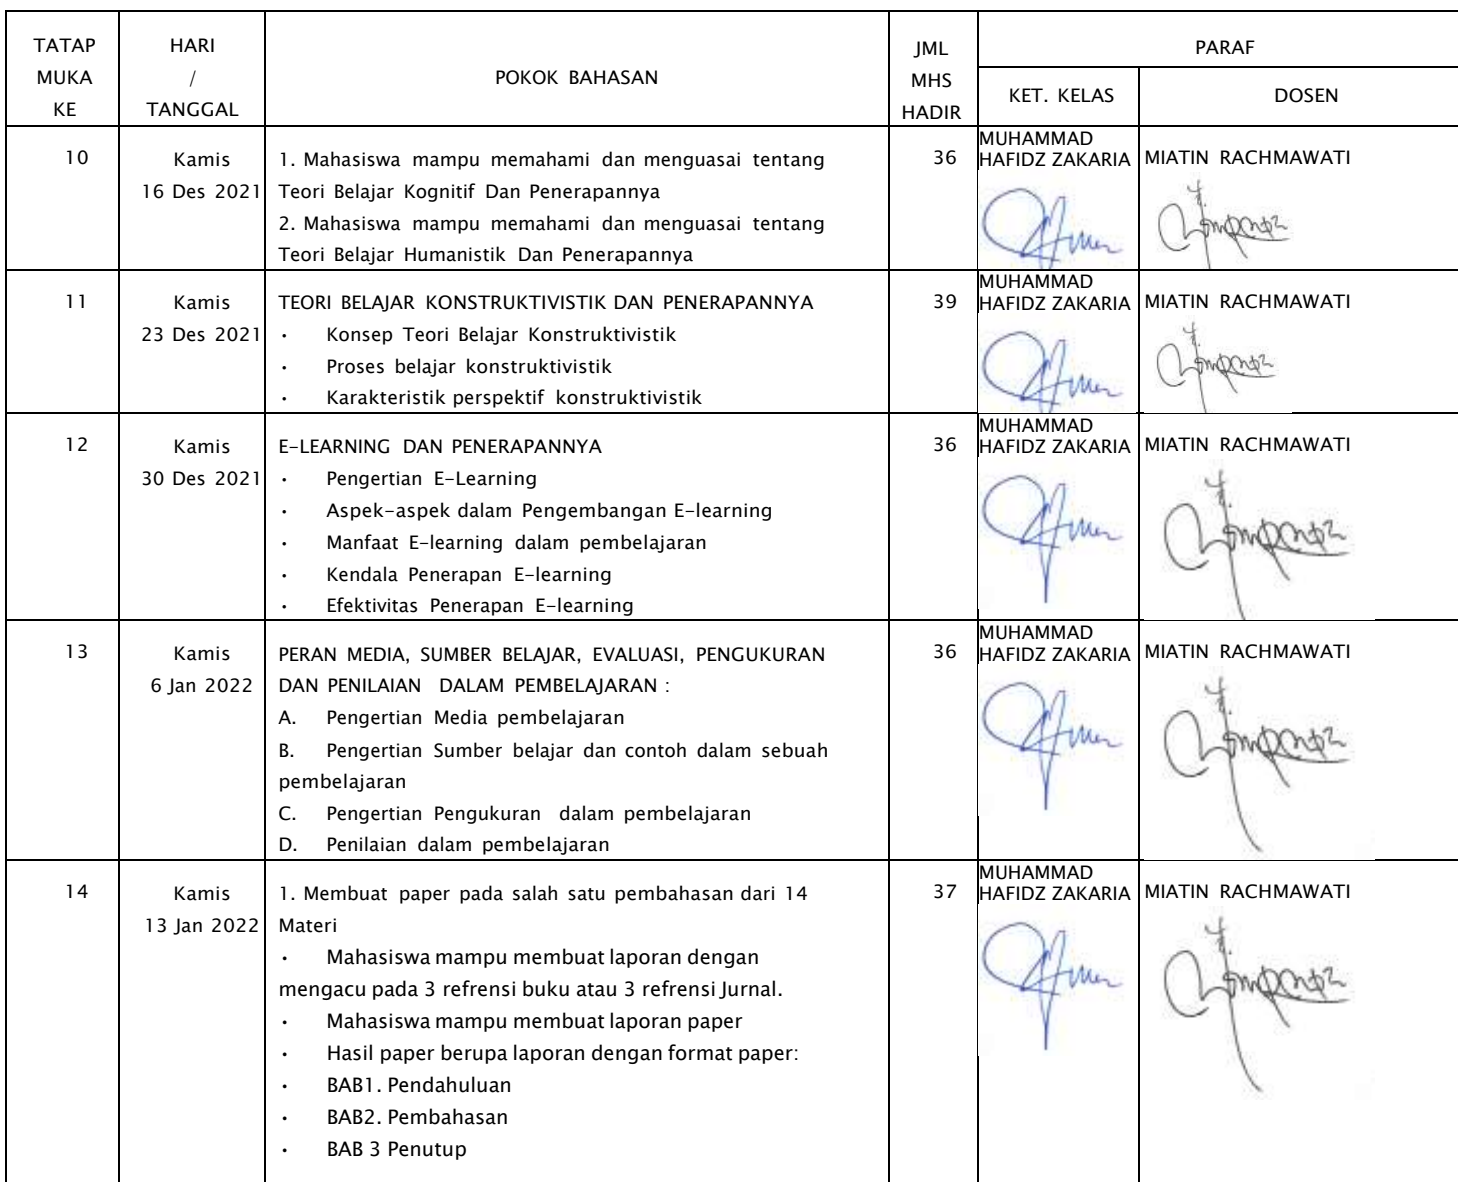 TATAP MUKA KE
HARI / TANGGAL
POKOK BAHASAN
JML MHS HADIR
PARAF
KET. KELAS
DOSEN
10
Kamis
16 Des 2021
1. Mahasiswa mampu memahami dan menguasai tentang
Teori Belajar Kognitif Dan Penerapannya
2. Mahasiswa mampu memahami dan menguasai tentang
Teori Belajar Humanistik Dan Penerapannya
36
MUHAMMAD
HAFIDZ ZAKARIA
MIATIN RACHMAWATI
11
Kamis
23 Des 2021
TEORI BELAJAR KONSTRUKTIVISTIK DAN PENERAPANNYA
• Konsep Teori Belajar Konstruktivistik
• Proses belajar konstruktivistik
• Karakteristik perspektif konstruktivistik
39
MUHAMMAD
HAFIDZ ZAKARIA
MIATIN RACHMAWATI
12
Kamis
30 Des 2021
E-LEARNING DAN PENERAPANNYA
• Pengertian E-Learning
• Aspek-aspek dalam Pengembangan E-learning
• Manfaat E-learning dalam pembelajaran
• Kendala Penerapan E-learning
• Efektivitas Penerapan E-learning
36
MUHAMMAD
HAFIDZ ZAKARIA
MIATIN RACHMAWATI
13
Kamis
6 Jan 2022
PERAN MEDIA, SUMBER BELAJAR, EVALUASI, PENGUKURAN
DAN PENILAIAN DALAM PEMBELAJARAN :
A. Pengertian Media pembelajaran
B. Pengertian Sumber belajar dan contoh dalam sebuah
pembelajaran
C. Pengertian Pengukuran dalam pembelajaran
D. Penilaian dalam pembelajaran
36
MUHAMMAD
HAFIDZ ZAKARIA
MIATIN RACHMAWATI
14
Kamis
13 Jan 2022
1. Membuat paper pada salah satu pembahasan dari 14
Materi
• Mahasiswa mampu membuat laporan dengan
mengacu pada 3 refrensi buku atau 3 refrensi Jurnal.
• Mahasiswa mampu membuat laporan paper
• Hasil paper berupa laporan dengan format paper:
• BAB1. Pendahuluan
• BAB2. Pembahasan
• BAB 3 Penutup
37
MUHAMMAD
HAFIDZ ZAKARIA
MIATIN RACHMAWATI